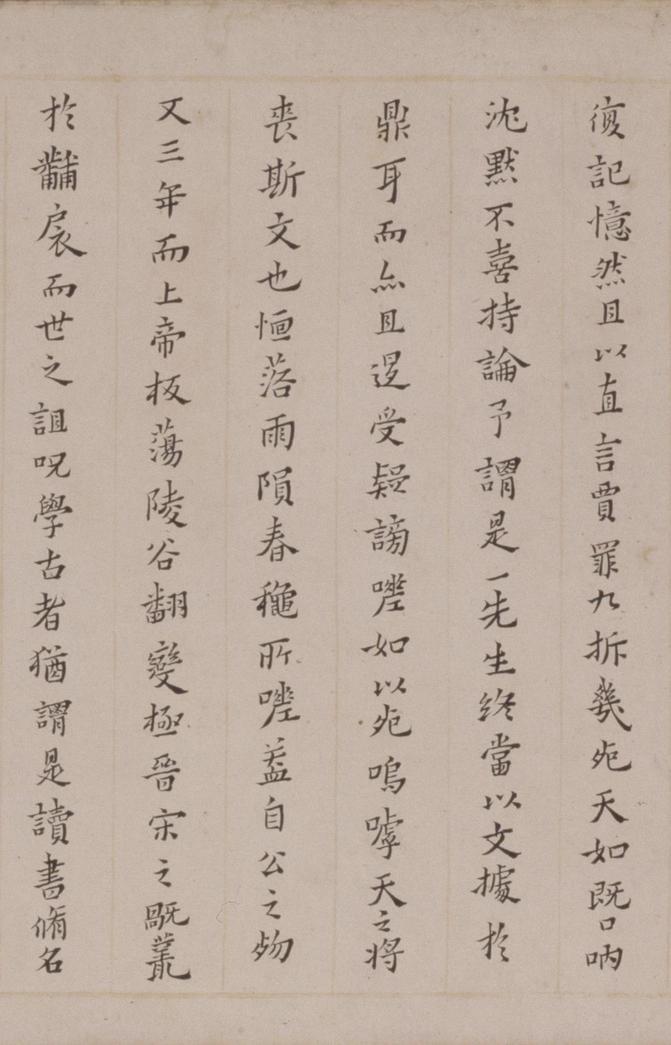 復記憶然且以直言賈罪九拆幾死天如既口吶
沈默不喜持論予謂是一先生終當以文據於
鼎耳而亦且受疑謗如以死嗚嘑天之將
喪斯文也恒落雨隕春穐所蓋自公之歾
又三年而上帝板蕩陵谷翻變極晉宋之叢
於黼扆而世之詛呪學古者猶謂是讀書脩名